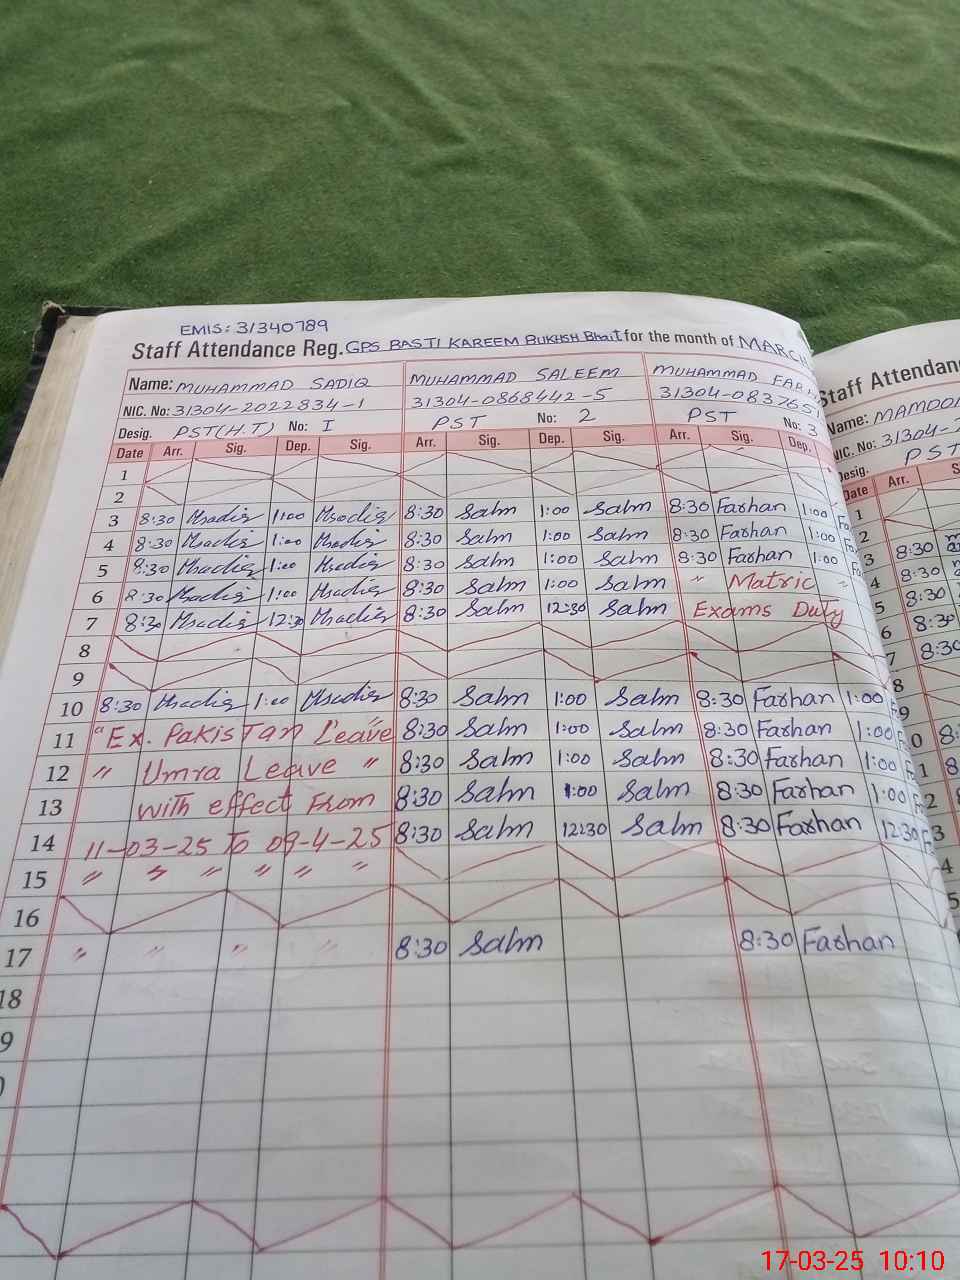 EMIS: 31340789
Staff Attendance Reg. GPS BASTI KAREEM BUKHSH Bhait for the month of MARCH
Name: MUHAMMAD SADIQ MUHAMMAD SALEEM MUHAMMAD FARH
NIC. No: 31304-2022834-1 31304-0868442-5 31304-083765
Desig. PST(H.T) No: I PST No: 2 PST No: 3
Date Arr. Sig. Dep. Sig. Arr. Sig. Dep. Sig. Arr. Sig. Dep.
1
2
3 8:30 Msadiq 1:00 Msadiq 8:30 Salm 1:00 Salm 8:30 Farhan 1:00 Fa
4 8:30 Msadiq 1:00 Msadiq 8:30 Salm 1:00 Salm 8:30 Farhan 1:00 Fa
5 8:30 Msadiq 1:00 Msadiq 8:30 Salm 1:00 Salm 8:30 Farhan 1:00 Fa
6 8:30 Msadiq 1:00 Msadiq 8:30 Salm 1:00 Salm " Matric "
7 8:30 Msadiq 12:30 Msadiq 8:30 Salm 12:30 Salm Exams Duty
8
9
10 8:30 Msadiq 1:00 Msadiq 8:30 Salm 1:00 Salm 8:30 Farhan 1:00 F
11 "Ex. Pakistan Leave" 8:30 Salm 1:00 Salm 8:30 Farhan 1:00 F
12 " Umra Leave " 8:30 Salm 1:00 Salm 8:30 Farhan 1:00 Fa
13 with effect From 8:30 Salm 1:00 Salm 8:30 Farhan 1:00 Fa
14 11-03-25 To 09-4-25 8:30 Salm 12:30 Salm 8:30 Farhan 12:30 F
15 " " " " " "
16
17 " " " " 8:30 Salm 8:30 Farhan
18
9
0
Staff Attendan
Name: MAMOO
NIC. No: 31304-
Desig. PST
Date Arr. S
1
2
3 8:30
4 8:30
5 8:30
6 8:30
7 8:30
8
9
0 8:
1 8
2
3
4
5
17-03-25 10:10